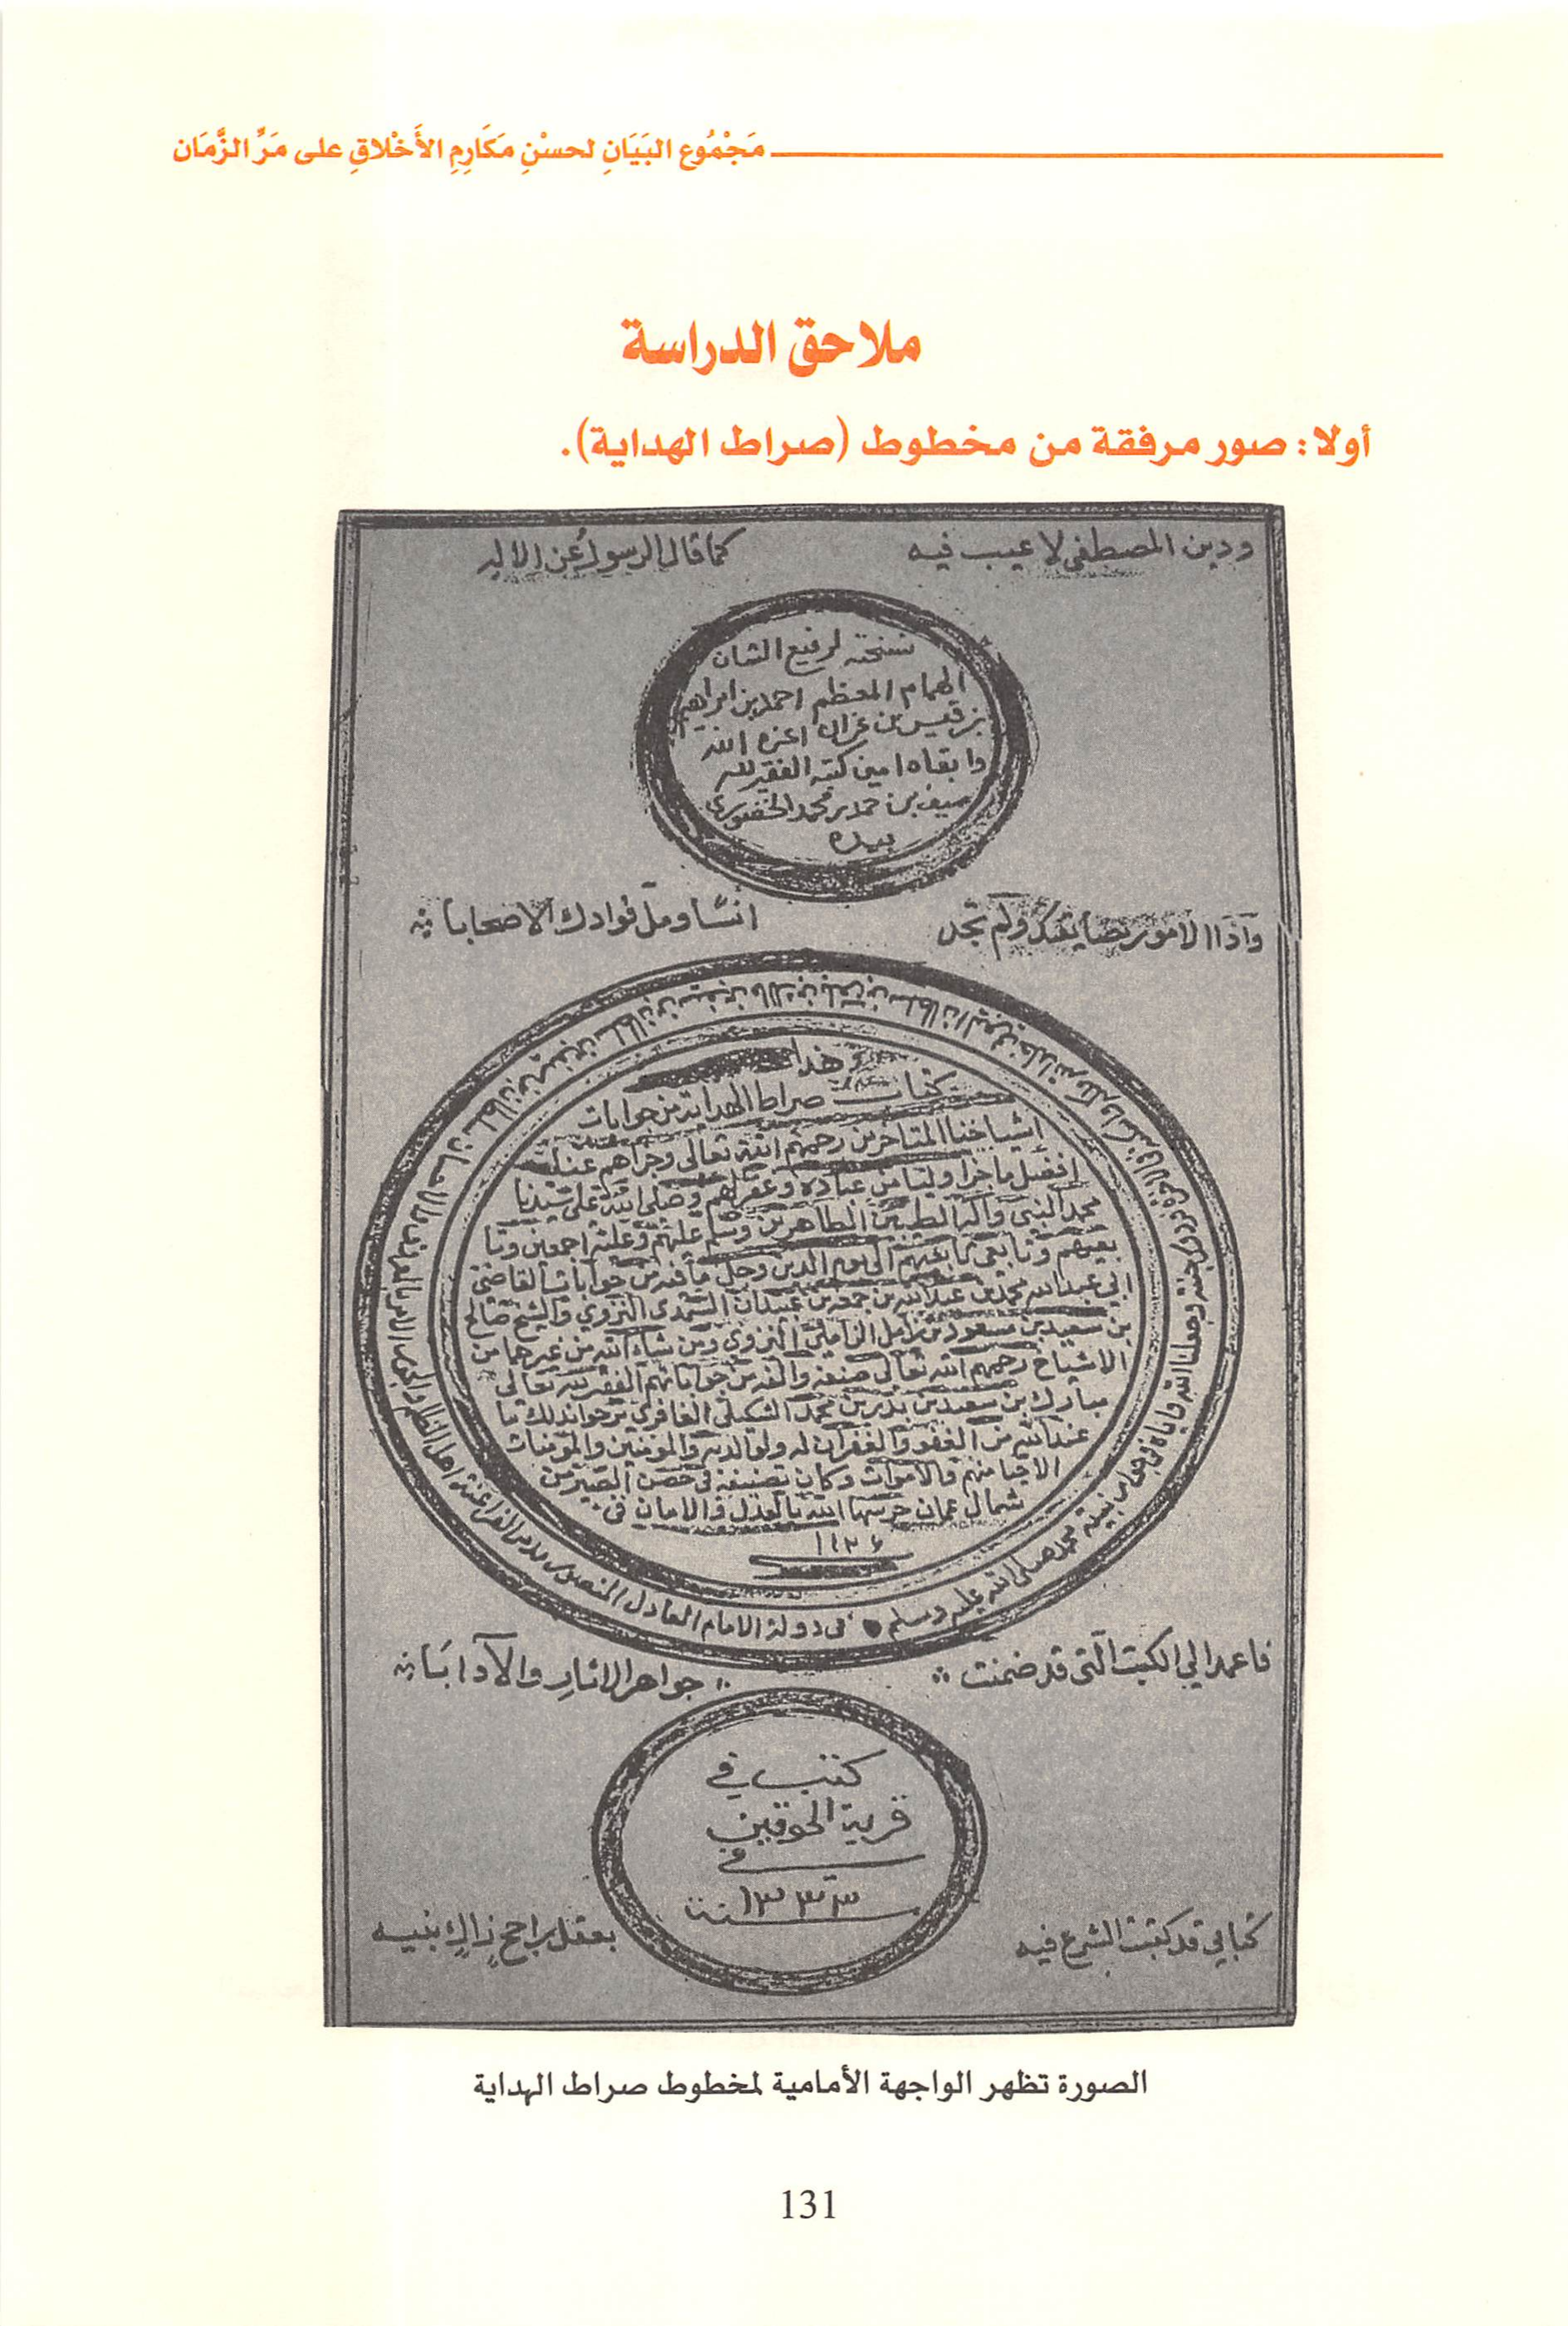 مَجْمُوع البَيَانِ لحسْنِ مَكَارِمِ الأَخْلاقِ على مَرِّ الزَّمَان
ملاحق الدراسة
أولا: صور مرفقة من مخطوط (صراط الهداية).
ودين المصطفى لا عيب فيه كما قال الرسول عن الاله
نسخته لرفيع الشان
الهمام المعظم احمد بن ابراهيم
بن قيس بن عزان اعزه الله
وابقاه امين كتبه الفقير لله
سيف بن حمد بن محمد
بيده
واذا الامور ولم تجد انسا ومل فوادك الاصحابا
هذا
كتاب صراط الهداية من جوابات
اشياخنا المتاخرين رحمهم الله تعالى وجزاهم عنا
افضل ما جزا وليا من عباده وغفر لهم وصلى الله على سيدنا
محمد النبي وآله الطيبين الطاهرين وسلم عليهم وعليه اجمعين وتا
بعيهم وتابعي تابعيهم الى يوم الدين وجل ما فيه من جوابات القاضي
ابي عبدالله محمد بن عبدالله بن جمعه بن عبيدان النزوي والشيخ صالح
بن سعيد بن مسعود بن زامل الزاملي النزوي ومن شاء الله من غيرهما من
الاشياخ رحمهم الله تعالى صنفه والفه من جواباتهم الفقير لله تعالى
مبارك بن سعيد بن بدر بن محمد الشكيلي الغافري يرجوا بذلك ما
عند الله من العفو والغفران له ولوالديه والمومنين والمومنات
الاحيا منهم والاموات وكان تصنيفه في حصن من
شمال عمان حرسها الله بالعدل والامان في
في دولة الامام العادل المنصور
سلطان بن سيف بن سلطان بن سيف بن مالك بن بلعرب بن سلطان اليعربي
نبيه محمد صلى الله عليه وسلم
فاعمد الي الكتب التي قد ضمنت جواهر الاثار والآدابا
كتب في
قرية الحوقين
في
سنة ١٣٣٣
كتابي قد كتبت الشرع فيه بعقل راجح
الصورة تظهر الواجهة الأمامية لمخطوط صراط الهداية
131